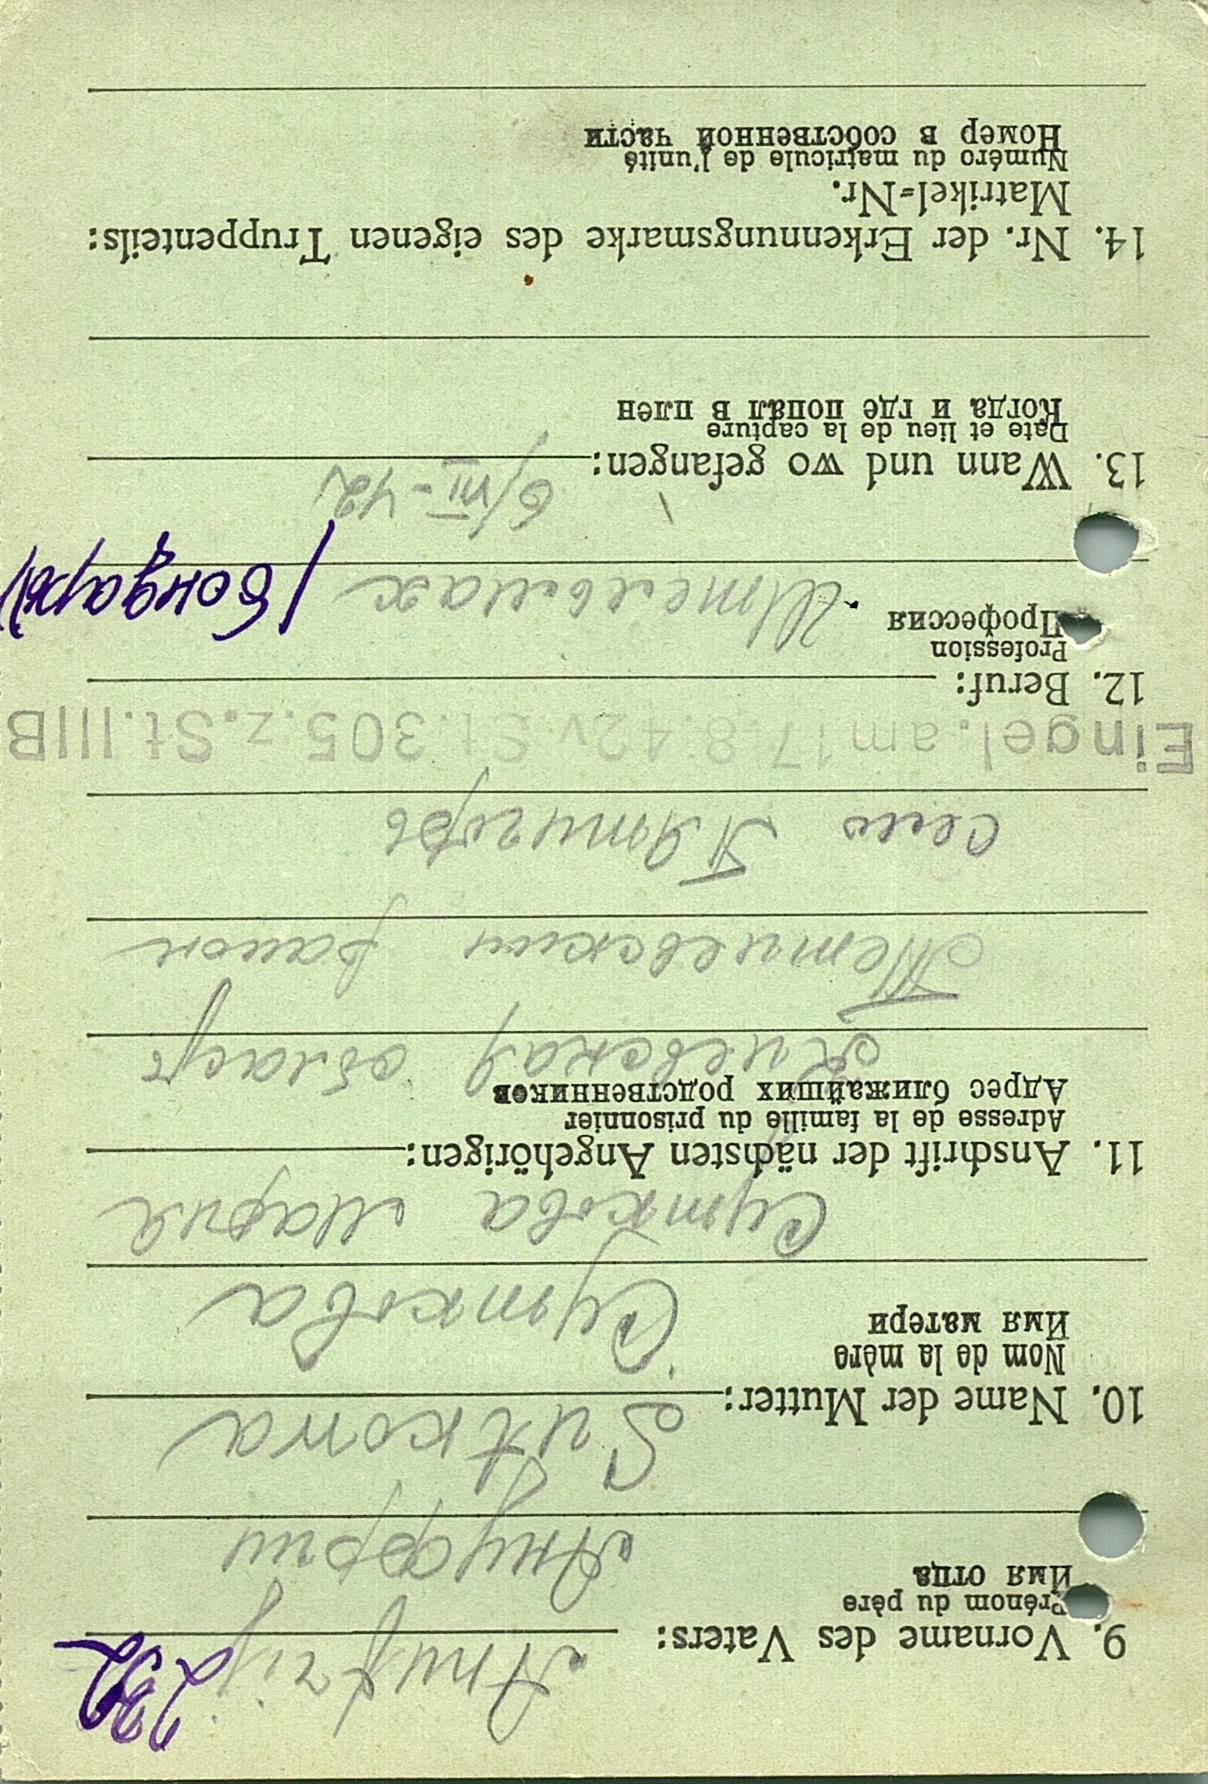 232
9. Vorname des Vaters: Anufrij
Prénom du père
Имя отца
Ануфрии
Sutkowa
10. Name der Mutter:
Nom de la mère
Имя матери
Суткова
Суткова Мария
11. Anschrift der nächsten Angehörigen:
Adresse de la famille du prisonnier
Адрес ближайших родственников
Киевская область
Тетиевскии раион
Село Пятигоры
Eingel. am 17.8.42 v. St. 305. z. St. IIIB
12. Beruf:
Profession
Профессия
Штельмах /бондарь/
6/VII-42
13. Wann und wo gefangen:
Date et lieu de la capture
Когда и где попал в плен
14. Nr. der Erkennungsmarke des eigenen Truppenteils:
Matrikel=Nr.
Numéro du matricule de l'unité
Номер в собственной части